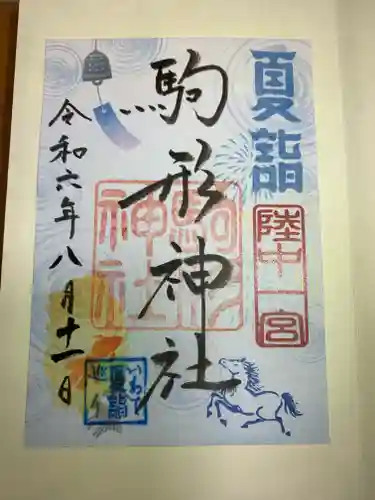 夏詣
陸中一宮
駒形神社
駒形神社
令和六年八月十一日
いわて
夏詣